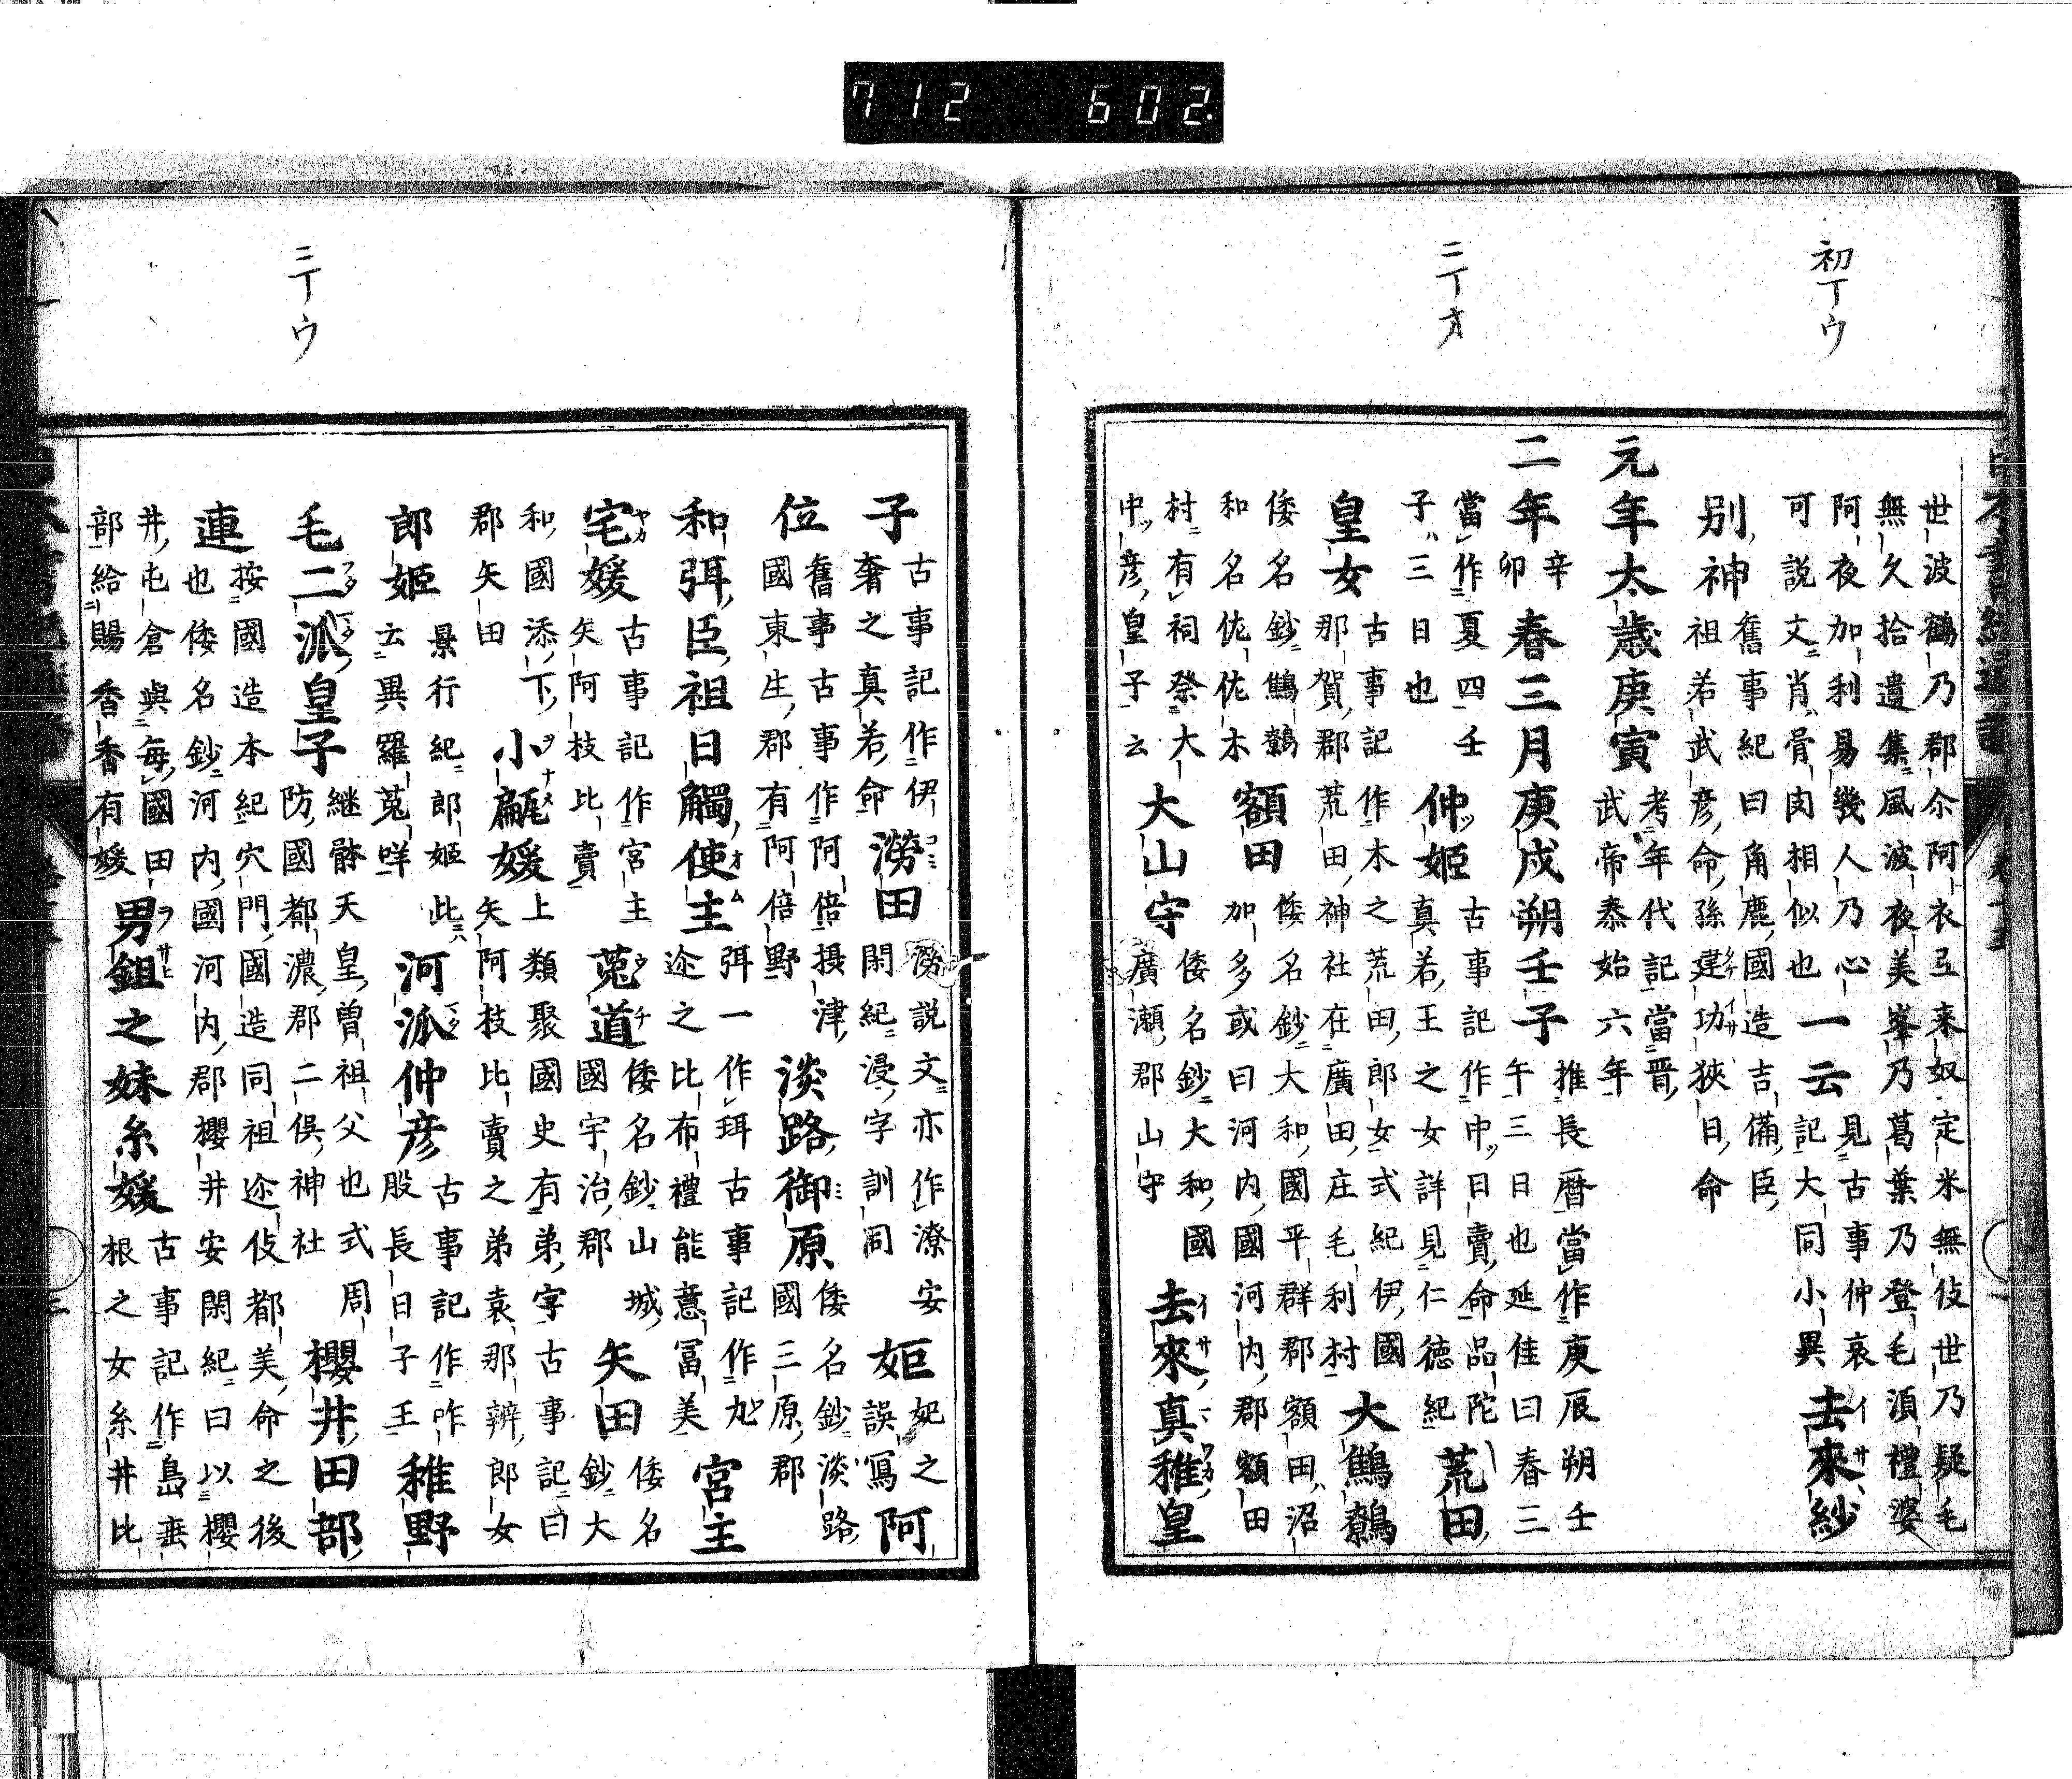 712 602.
初丁ウ
二丁オ
二丁ウ
世波鶴乃郡尒阿衣弖来奴定米無伎世乃疑毛
無久拾遺集風波夜美峯乃葛葉乃登毛湏禮婆
阿夜加利易幾人乃心可說文肖骨肉相似也一云見古事仲哀記大同小異去來紗
別神舊事紀曰角鹿國造吉備臣祖若武彥命孫建功狹日命
元年太歲庚寅考年代記當晋武帝泰始六年
二年辛卯春三月庚戌朔壬子推長暦當作庚辰朔壬午三日也延佳曰春三
當作夏四壬子三日也仲姬古事記作中日賣命品陀真若王之女詳見仁徳紀荒田
皇女古事記作木之荒田郎女式紀伊國那賀郡荒田神社在廣田庄毛利村大鷦鷯
倭名鈔鷦鷯和名佐佐木額田倭名鈔大和國平群郡額田沼加多或曰河内國河内郡額田
村有祠祭大中彥皇子云大山守倭名鈔大和國廣瀬郡山守去來真稚皇
子古事記作伊奢之真若命澇田澇說文亦作潦安閑紀浸字訓同姖妃之誤寫阿
位舊事古事作阿倍摂津國東生郡有阿倍野淡路御原倭名鈔淡路國三原郡
和弭臣祖日觸使主弭一作珥古事記作丸迩之比布禮能意冨美宮主
宅媛古事記作宮主矢阿枝比賣菟道倭名鈔山城國宇治郡矢田倭名鈔大
和國添下郡矢田小甂媛上類聚國史有弟字古事記曰矢阿枝比賣之弟袁那辨郎女
郎姬景行紀郎姬此云異羅菟咩河派仲彥古事記作咋股長日子王稚野
毛二派皇子継體天皇曽祖父也式周防國都濃郡二俣神社櫻井田部
連按國造本紀穴門國造同祖迩伎都美命之後也倭名鈔河内國河内郡櫻井安閑紀曰以櫻
井屯倉與每國田部給賜香香有媛男鉏之妹糸媛古事記作島垂根之女糸井比